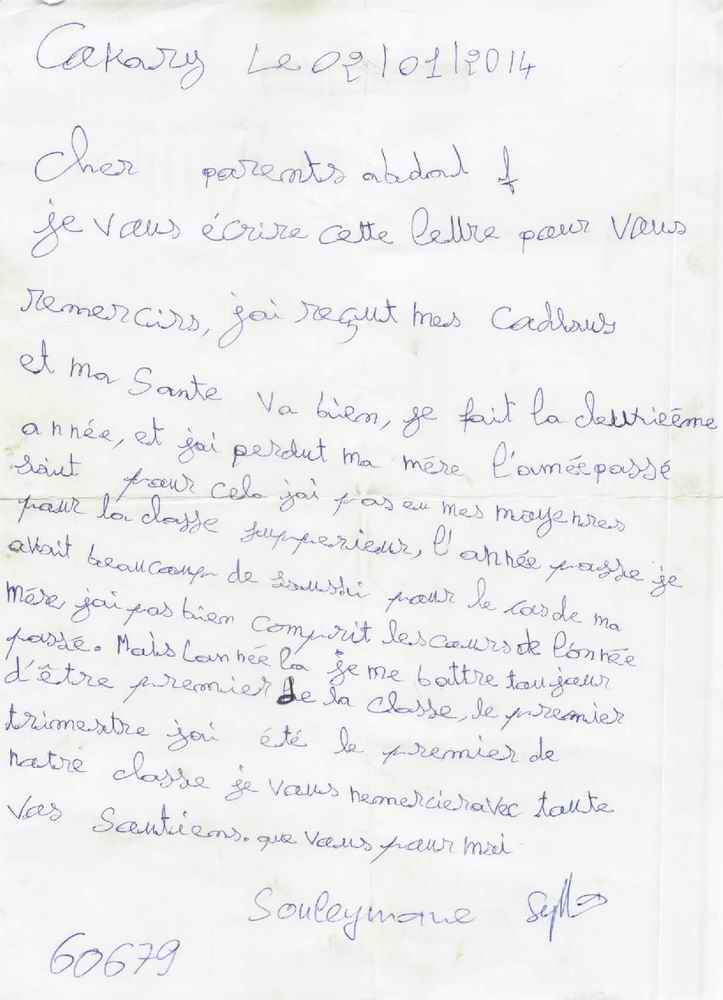 Cakary Le 02/01/2014
Cher parents abdont
je vous écrire cette lettre pour vous
remercirs, jai reçut mes cadlaus
et ma Sante va bien, je fait la deuxieéme
année, et jai perdut ma mére l'année passé
saut pour cela jai pas eu mes moyennes
pour la classe supperieur, l'année passe je
avait beaucoup de soussi pour le cas de ma
mére, jai pas bien comprit les cours de l'année
passé. Mais l'année la je me battre toujour
d'être premier de la classe, le premier
trimestre jai été le premier de
notre classe je vous remercier avec toute
vos Soutiens. que vous pour moi
Souleymane Sylla
60679